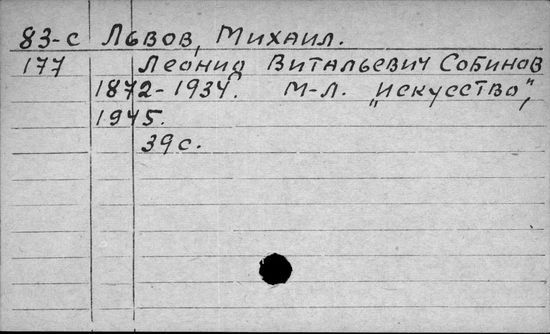 83-с Львов, Михаил.
177 Леонид Витальевич Собинов
1872-1934. М-Л. „Искусство",
1945.
39 с.